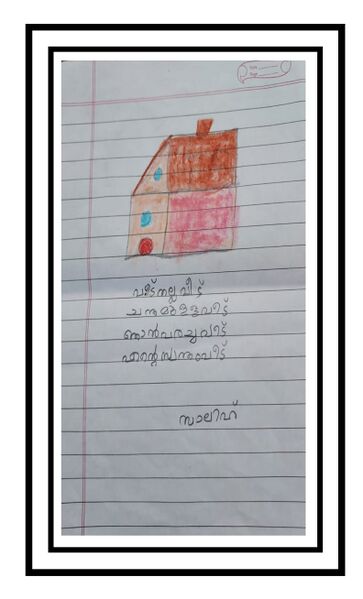 വീട് നല്ല വീട്
ചന്തമുള്ള വീട്
ഞാൻ വരച്ച വീട്
എന്റെ സ്വന്തം വീട്
സാലിഹ്